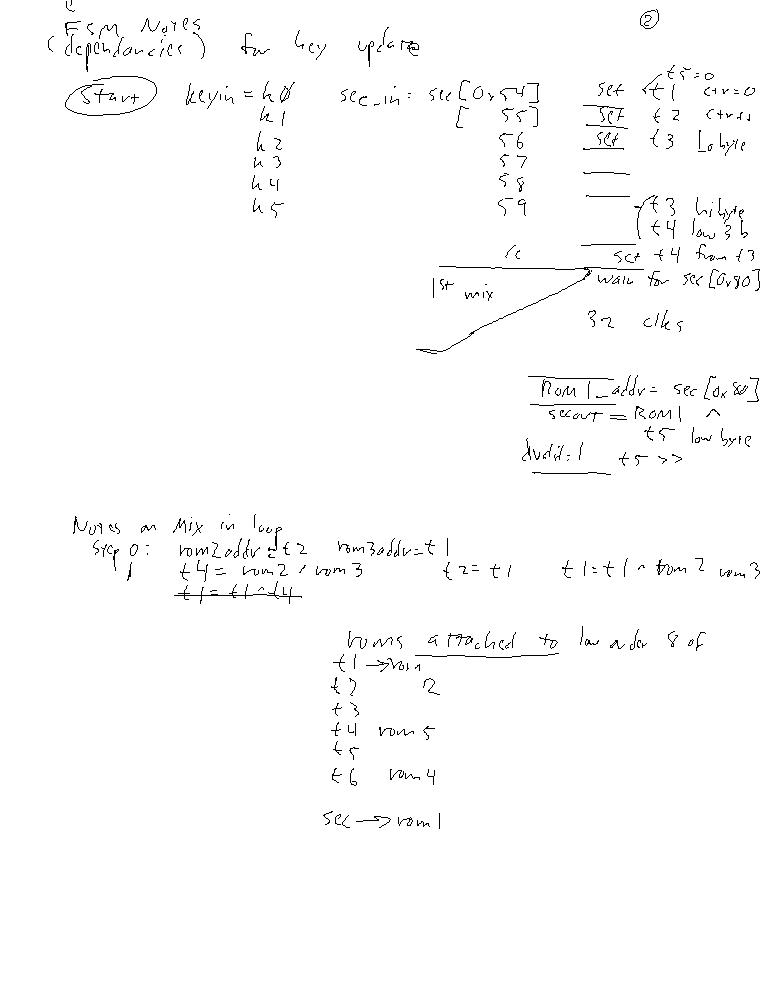 ②
FSM Notes
(dependancies) for key update
Start keyin = k0 sec_in = sec[0x54] set t1 t5=0 ctr=0
k1 [ 55] set t2
k2 56 set t3 Lo byte
k3 57
k4 58
k5 59 t3 hi byte
t4 low 3 b
set t4 from t3
1st mix wait for sec[0x80]
32 clks
ROM1_addr = sec[0x80]
secout = ROM1 ^
t5 low byte
dvalid=1 t5 >>
Notes on Mix in loop
Step 0: rom2addr = t2 rom3addr = t1
1 t4 = rom2 ^ rom3 t2 = t1 t1 = t1 ^ rom2 rom3
t1 = t1 ^ t4
roms attached to low order 8 of
t1 → rom
t2 2
t3
t4 rom5
t5
t6 rom4
sec → rom1